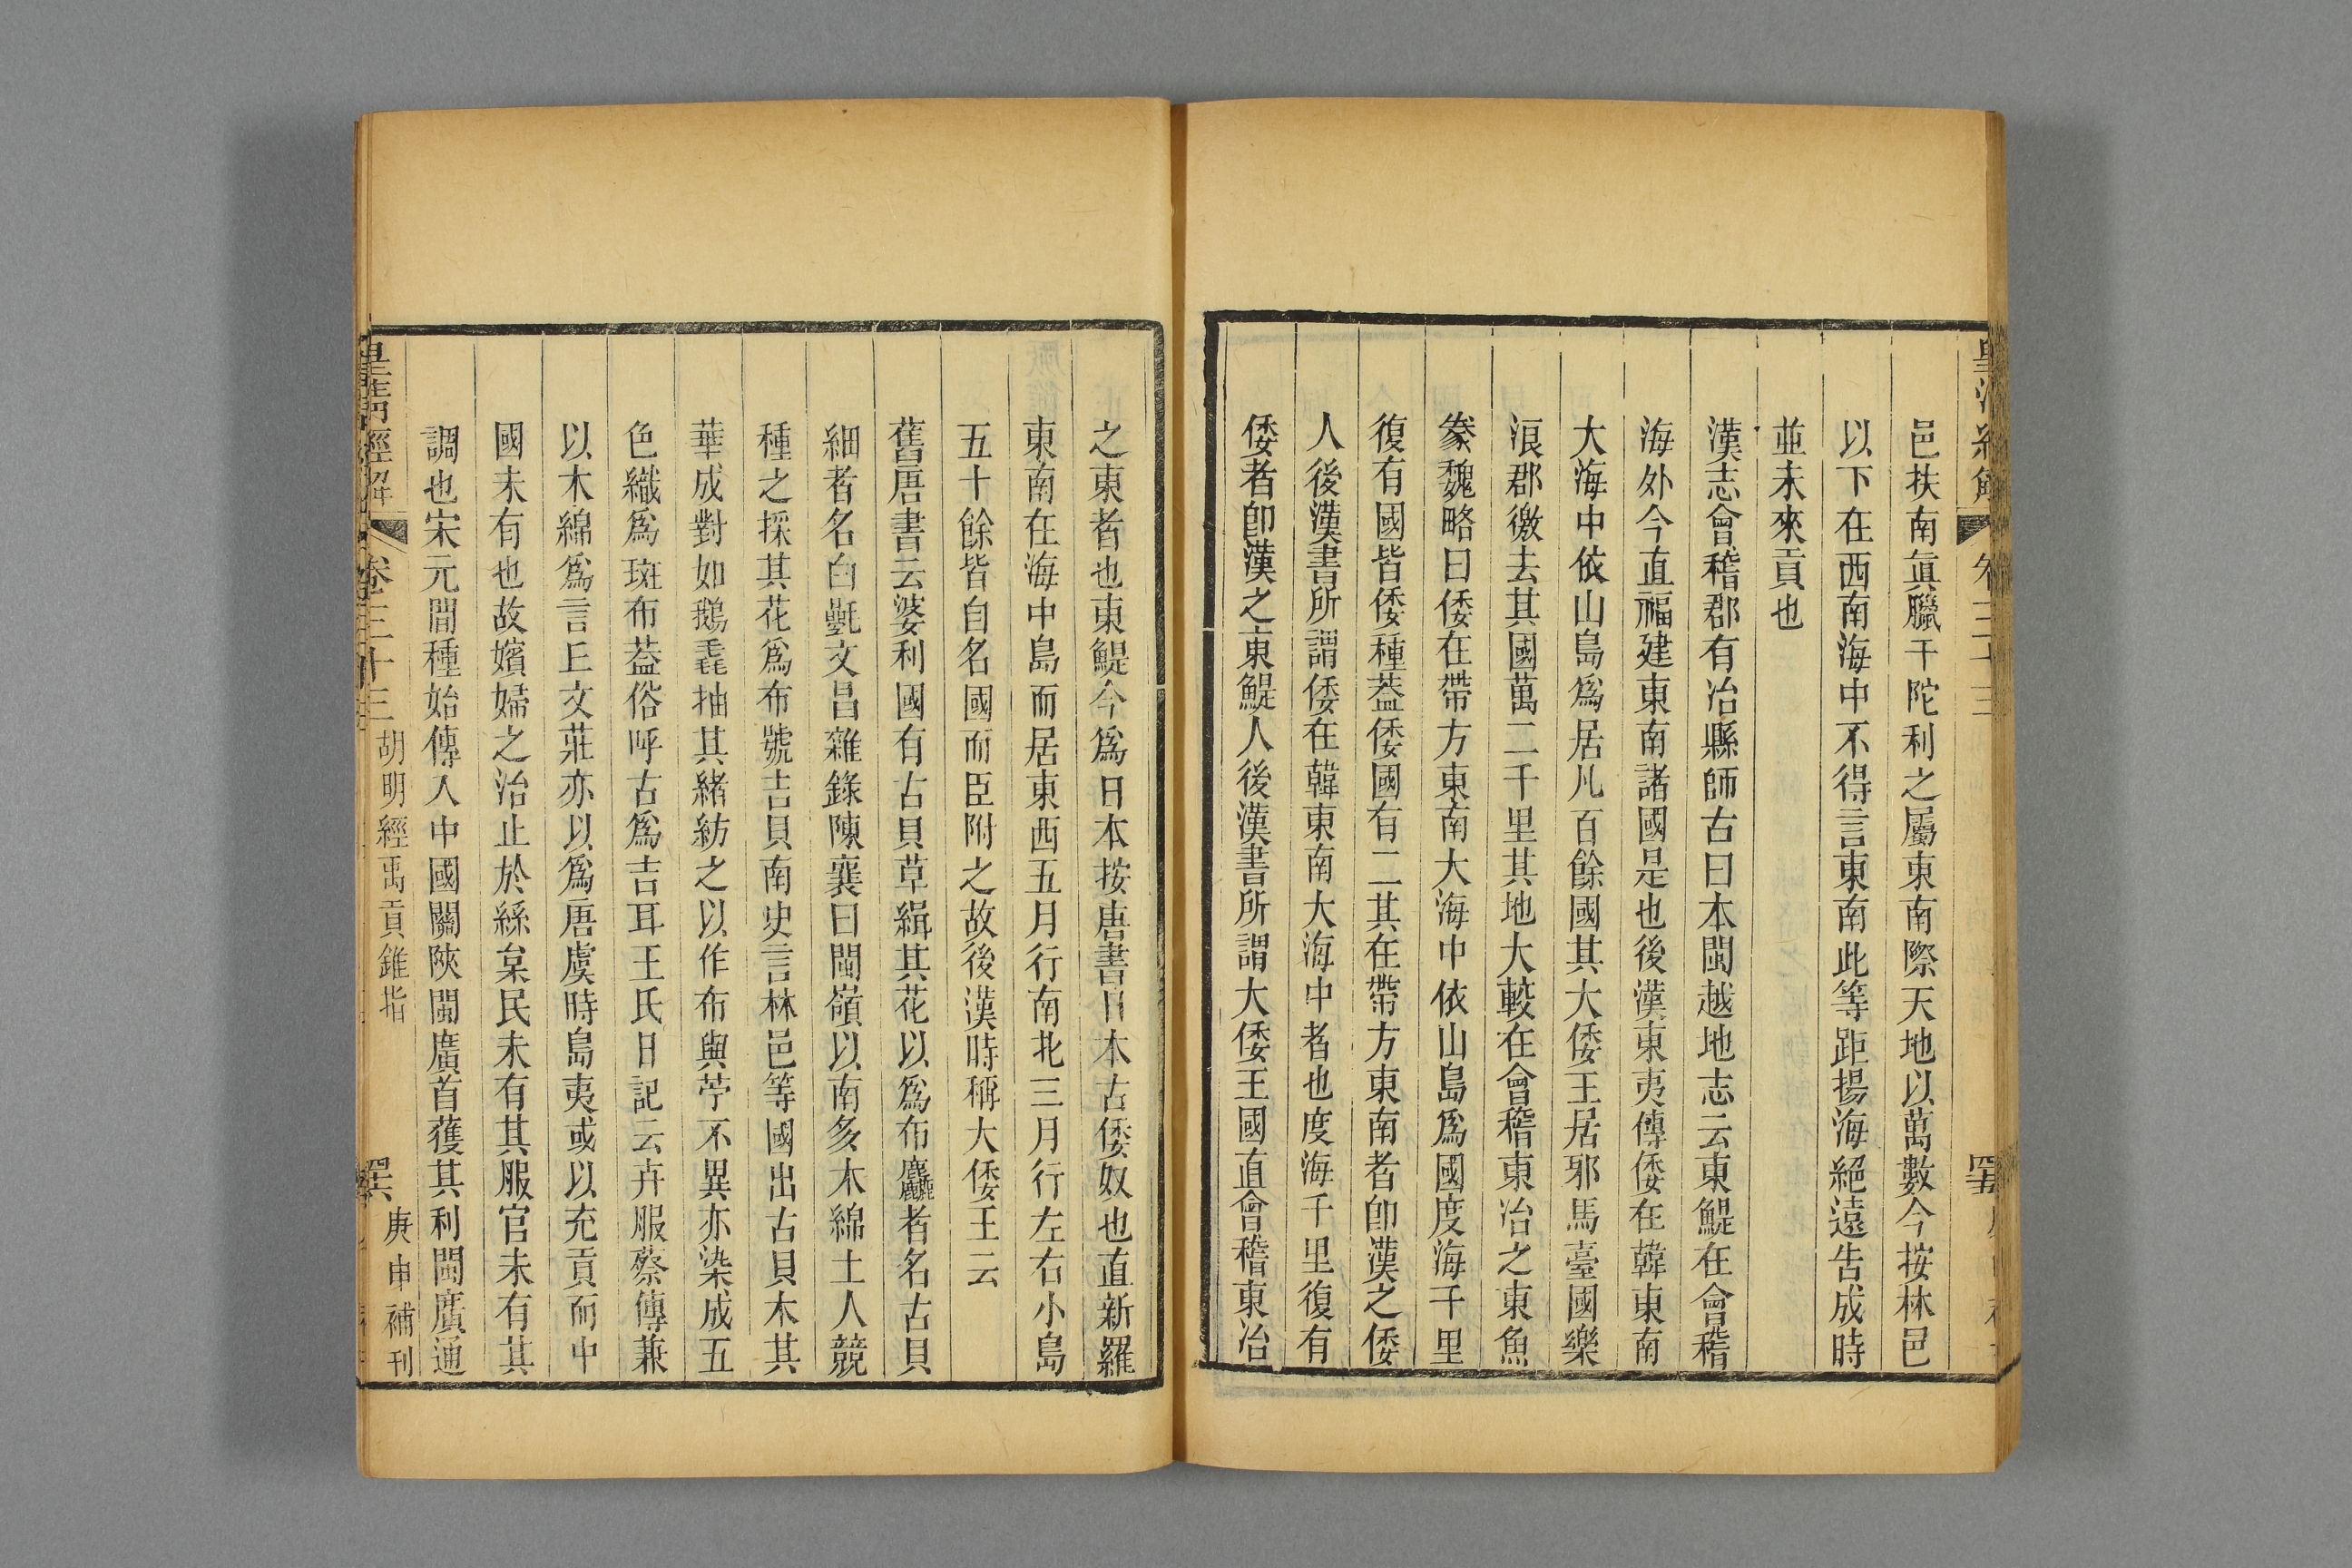 邑扶南眞臘干陀利之屬東南際天地以萬數今按林邑
以下在西南海中不得言東南此等距揚海絕遠告成時
並未來貢也
漢志會稽郡有冶縣師古曰本閩越地志云東鯷在會稽
海外今直福建東南諸國是也後漢東夷傳倭在韓東南
大海中依山島爲居凡百餘國其大倭王居邪馬臺國樂
浪郡徼去其國萬二千里其地大較在會稽東冶之東魚
豢魏略曰倭在帶方東南大海中依山島爲國度海千里
復有國皆倭種葢倭國有二其在帶方東南者卽漢之倭
人後漢書所謂倭在韓東南大海中者也度海千里復有
倭者卽漢之東鯷人後漢書所謂大倭王國直會稽東冶
之東者也東鯷今爲日本按唐書日本古倭奴也直新羅
東南在海中島而居東西五月行南北三月行左右小島
五十餘皆自名國而臣附之故後漢時稱大倭王云
舊唐書云婆利國有古貝草緝其花以爲布麤者名古貝
細者名白㲲文昌雜錄陳襄曰閩嶺以南多木綿土人競
種之採其花爲布號吉貝南史言林邑等國出古貝木其
華成對如鵝毳抽其緒紡之以作布與苧不異亦染成五
色織爲斑布葢俗呼古爲吉耳王氏日記云卉服蔡傳兼
以木綿爲言上文莊亦以爲唐虞時島夷或以充貢而中
國未有也故嬪婦之治止於絲枲民未有其服官未有其
調也宋元間種始傳入中國關陝閩廣首獲其利閩廣通
皇淸經解 卷三十三 胡明經禹貢錐指 庚申補刊